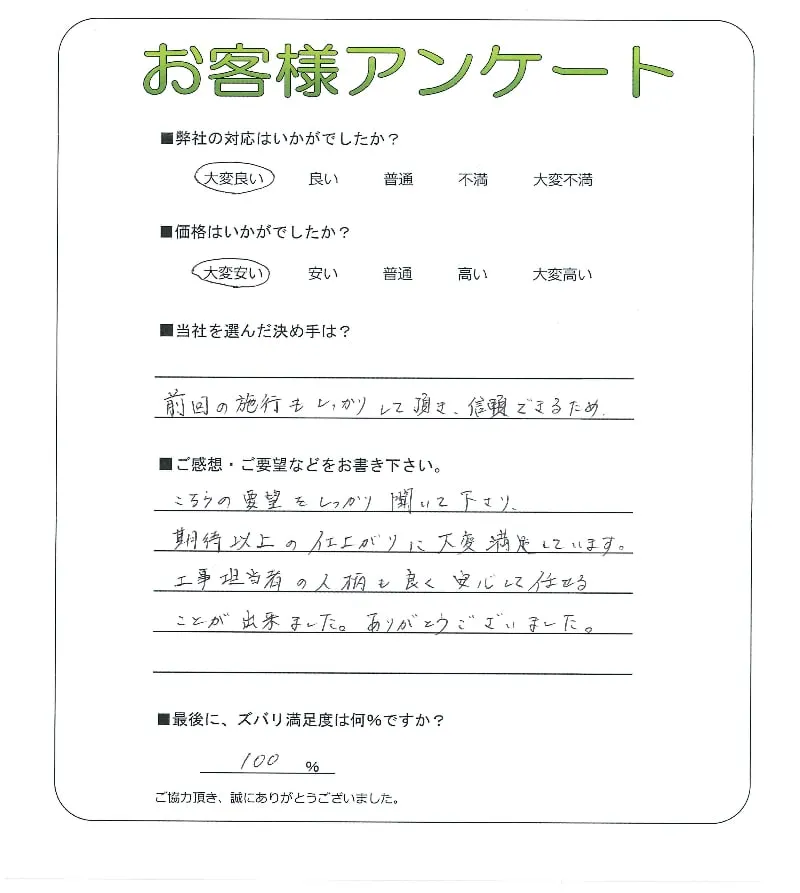 お客様アンケート
■弊社の対応はいかがでしたか？
大変良い 良い 普通 不満 大変不満
■価格はいかがでしたか？
大変安い 安い 普通 高い 大変高い
■当社を選んだ決め手は？
前回の施行もしっかりして頂き、信頼できるため。
■ご感想・ご要望などをお書き下さい。
こちらの要望をしっかり聞いて下さり、
期待以上の仕上がりに大変満足しています。
工事担当者の人柄も良く安心して任せる
ことが出来ました。ありがとうございました。
■最後に、ズバリ満足度は何%ですか？
100 %
ご協力頂き、誠にありがとうございました。